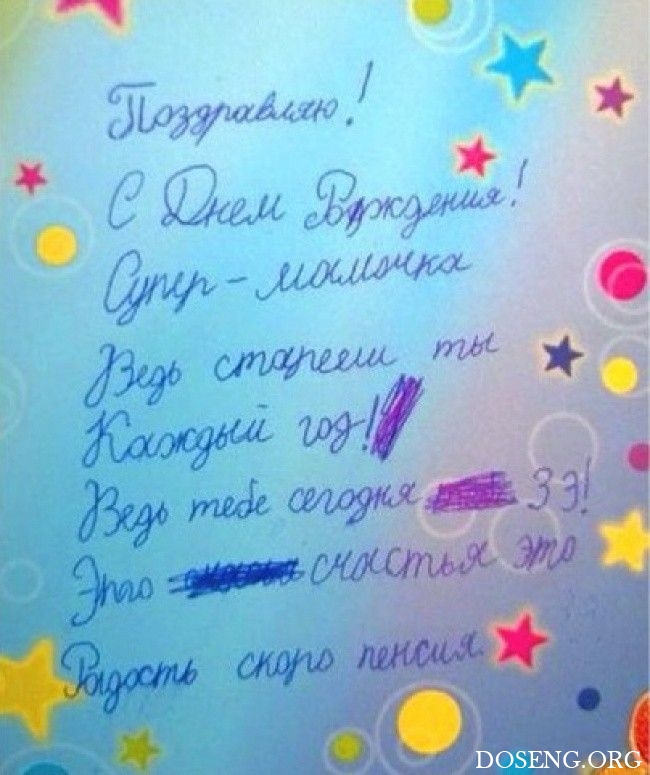 Поздравляю!
С Днем Рождения!
Супер-мамочка
Ведь стареешь ты
Каждый год!
Ведь тебе сегодня 39!
Это счастья это
Радость скоро пенсия.
DOSENG.ORG